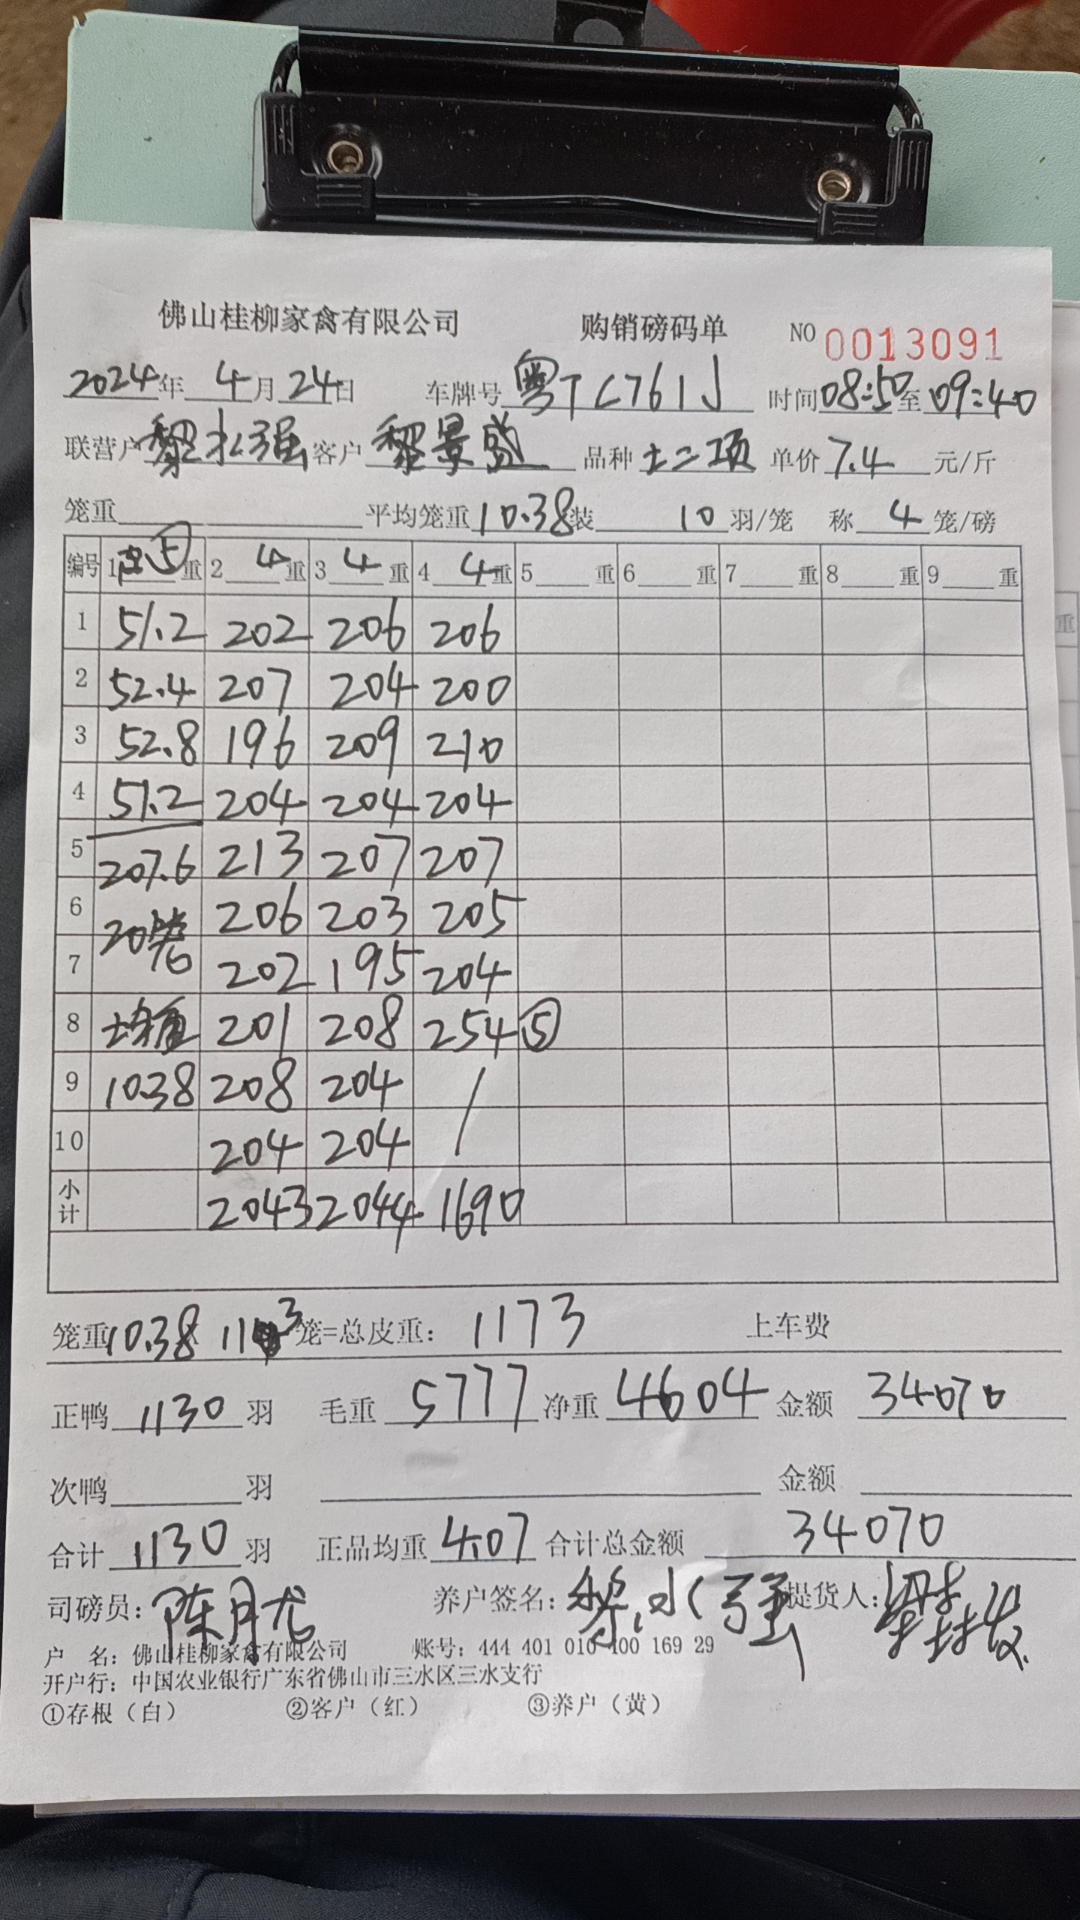 佛山桂柳家禽有限公司 购销磅码单 NO 0013091
2024年 4月 24日 车牌号 粤TC761J 时间08:50至09:40
联营户 黎水强 客户 黎景盛 品种 土二项 单价 7.4 元/斤
笼重 平均笼重 10.38 装 10 羽/笼 称 4 笼/磅
编号 1 ⑤ 重 2 4 重 3 4 重 4 4 重 5 重 6 重 7 重 8 重 9 重
1 51.2 202 206 206
2 52.4 207 204 200
3 52.8 196 209 210
4 51.2 204 204 204
5 207.6 213 207 207
6 20笼 206 203 205
7 202 195 204
8 均重 201 208 254 ⑤
9 10.38 208 204 /
10 204 204 /
小计 2043 2044 1690
笼重 10.38 113 笼=总皮重: 1173 上车费
正鸭 1130 羽 毛重 5777 净重 4604 金额 34070
次鸭 羽 金额
合计 1130 羽 正品均重 4.07 合计总金额 34070
司磅员: 陈月龙 养户签名: 黎水强 提货人:
户 名: 佛山桂柳家禽有限公司 账号: 444 401 010 400 169 29
开户行: 中国农业银行广东省佛山市三水区三水支行
①存根(白) ②客户(红) ③养户(黄)
重